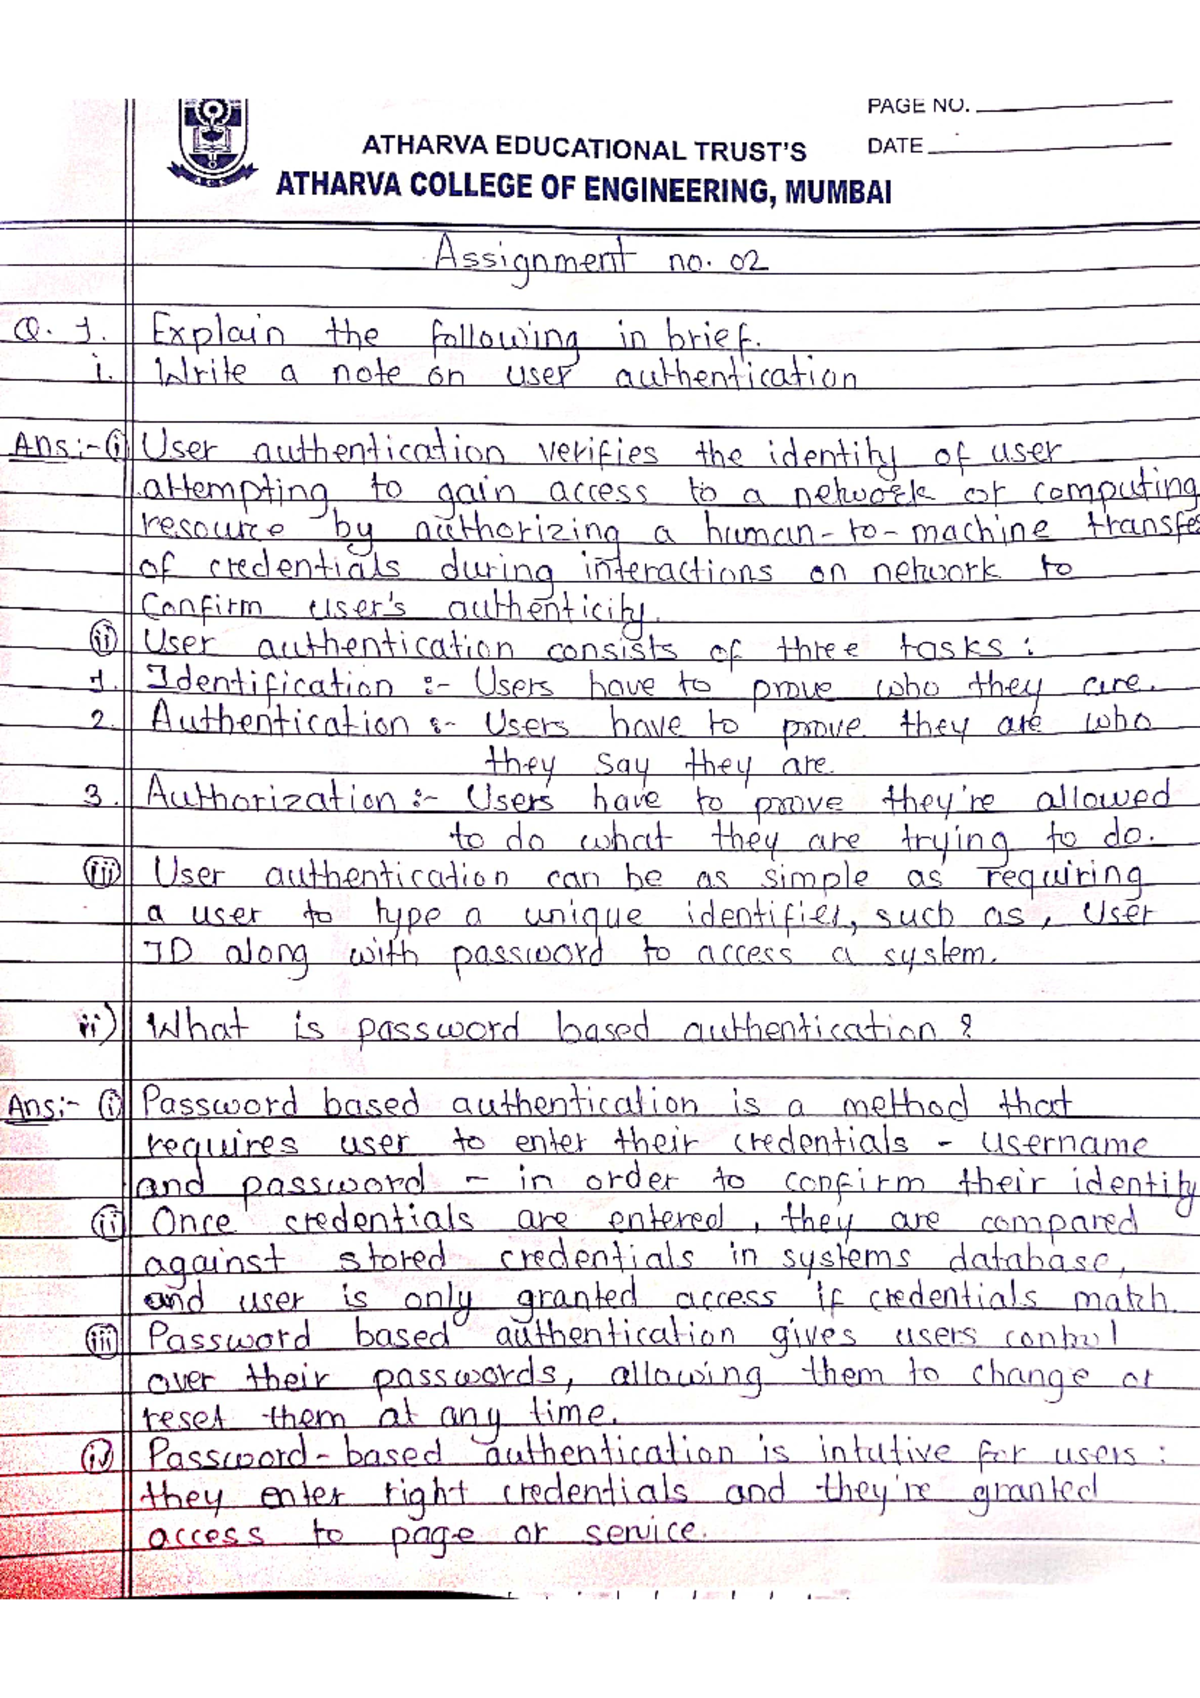 PAGE NO.
DATE
ATHARVA EDUCATIONAL TRUST'S
ATHARVA COLLEGE OF ENGINEERING, MUMBAI
Assignment no. 02
Q. 1. Explain the following in brief.
i. Write a note on user authentication
Ans:- (i) User authentication verifies the identity of user
attempting to gain access to a network or computing
resource by authorizing a human-to-machine transfe
of credentials during interactions on network to
Confirm user's authenticity.
(ii) User authentication consists of three tasks:
1. Identification :- Users have to prove who they are.
2. Authentication :- Users have to prove they are who
they say they are.
3. Authorization :- Users have to prove they're allowed
to do what they are trying to do.
(iii) User authentication can be as simple as requiring
a user to type a unique identifier, such as, User
ID along with password to access a system.
ii) What is password based authentication ?
Ans:- (i) Password based authentication is a method that
requires user to enter their credentials - username
and password - in order to confirm their identity
(ii) Once credentials are entered, they are compared
against stored credentials in systems database,
and user is only granted access if credentials match.
(iii) Password based authentication gives users control
over their passwords, allowing them to change or
reset them at any time.
(iv) Password-based authentication is intutive for users :
they enter right credentials and they're granted
access to page or service.